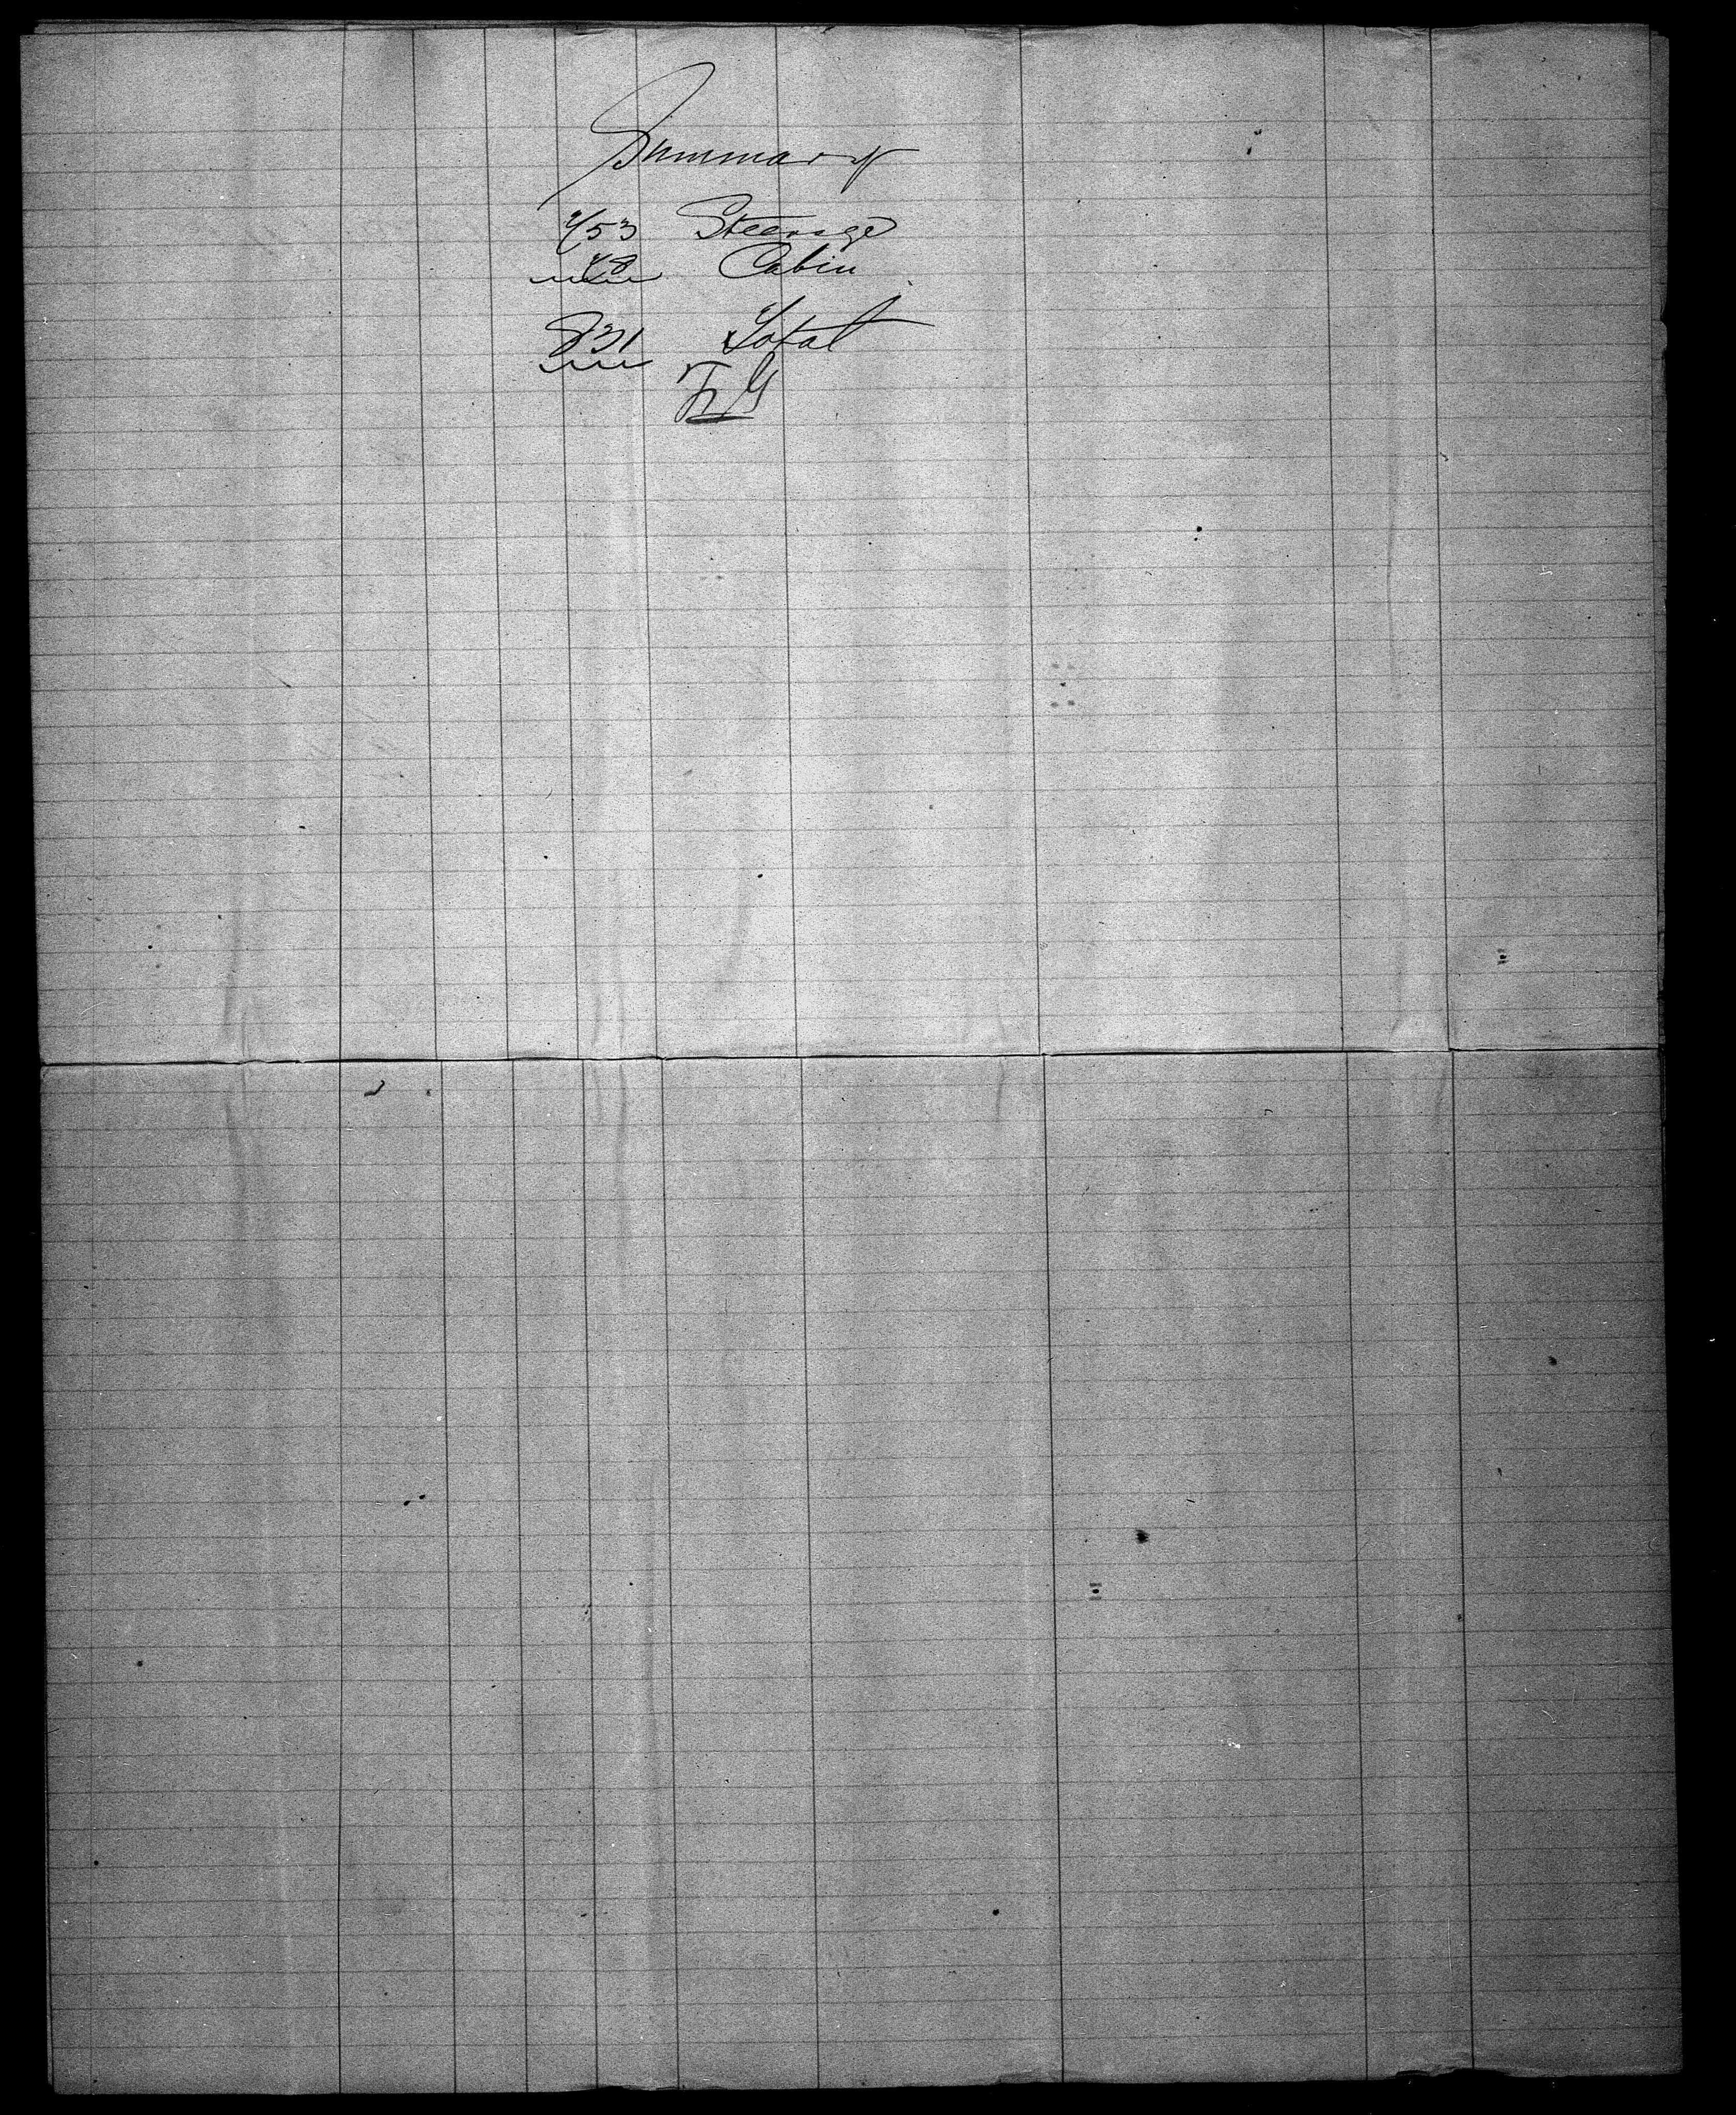 Summary
753 Steerage
78 Cabin
831 Total